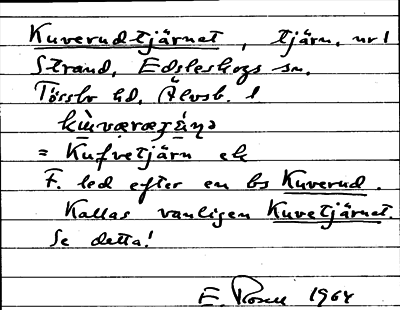 Kuverudtjärnet, tjärn, nr 1
Strand, Edsleskogs sn.
Tössbo hd. Älvsb. l
= Kufvetjärn ek
F. led efter en bs Kuverud.
Kallas vanligen Kuvetjärnet.
Se detta!
E. Rosell 1964